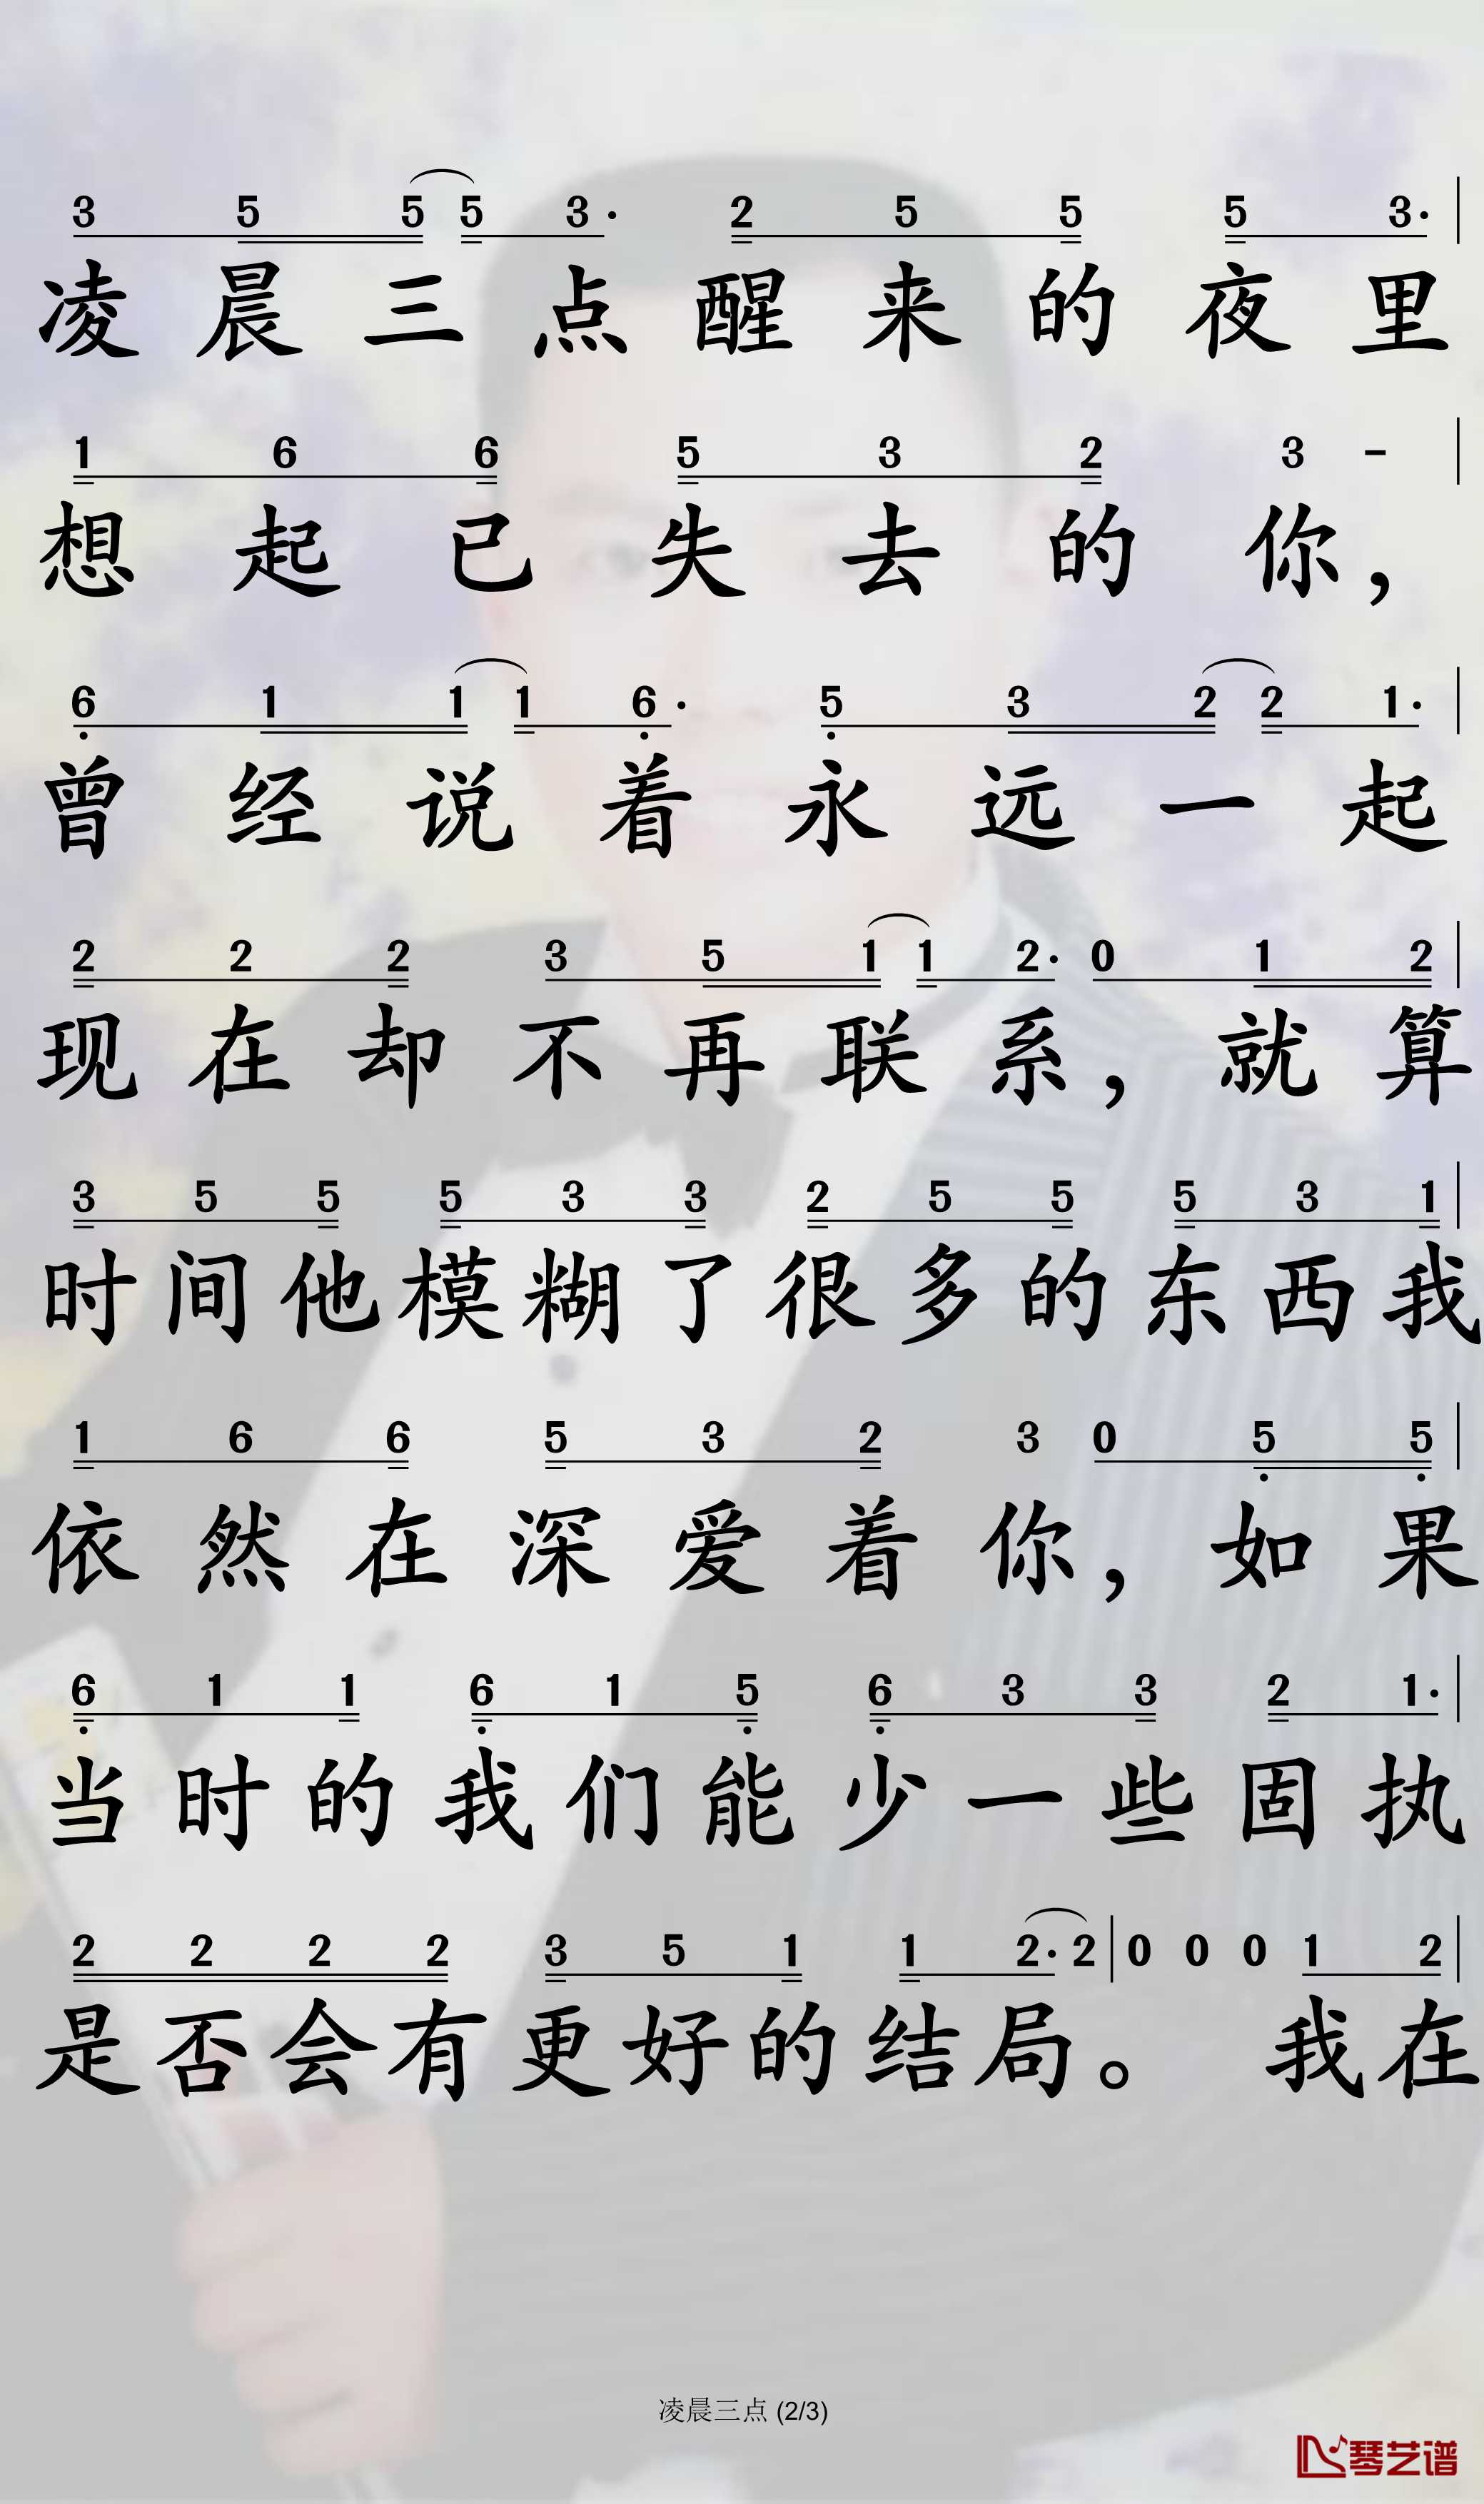 3 5 5 5 3· 2 5 5 5 3· |
凌晨三点醒来的夜里
1 6 6 5 3 2 3 - |
想起已失去的你，
6 1 1 1 6· 5 3 2 2 1· |
曾经说着永远一起
2 2 2 3 5 1 1 2· 0 1 2 |
现在却不再联系，就算
3 5 5 5 3 3 2 5 5 5 3 1 |
时间他模糊了很多的东西我
1 6 6 5 3 2 3 0 5 5 |
依然在深爱着你，如果
6 1 1 6 1 5 6 3 3 2 1· |
当时的我们能少一些固执
2 2 2 2 3 5 1 1 2· 2 | 0 0 0 1 2 |
是否会有更好的结局。 我在
凌晨三点 (2/3)
琴艺谱